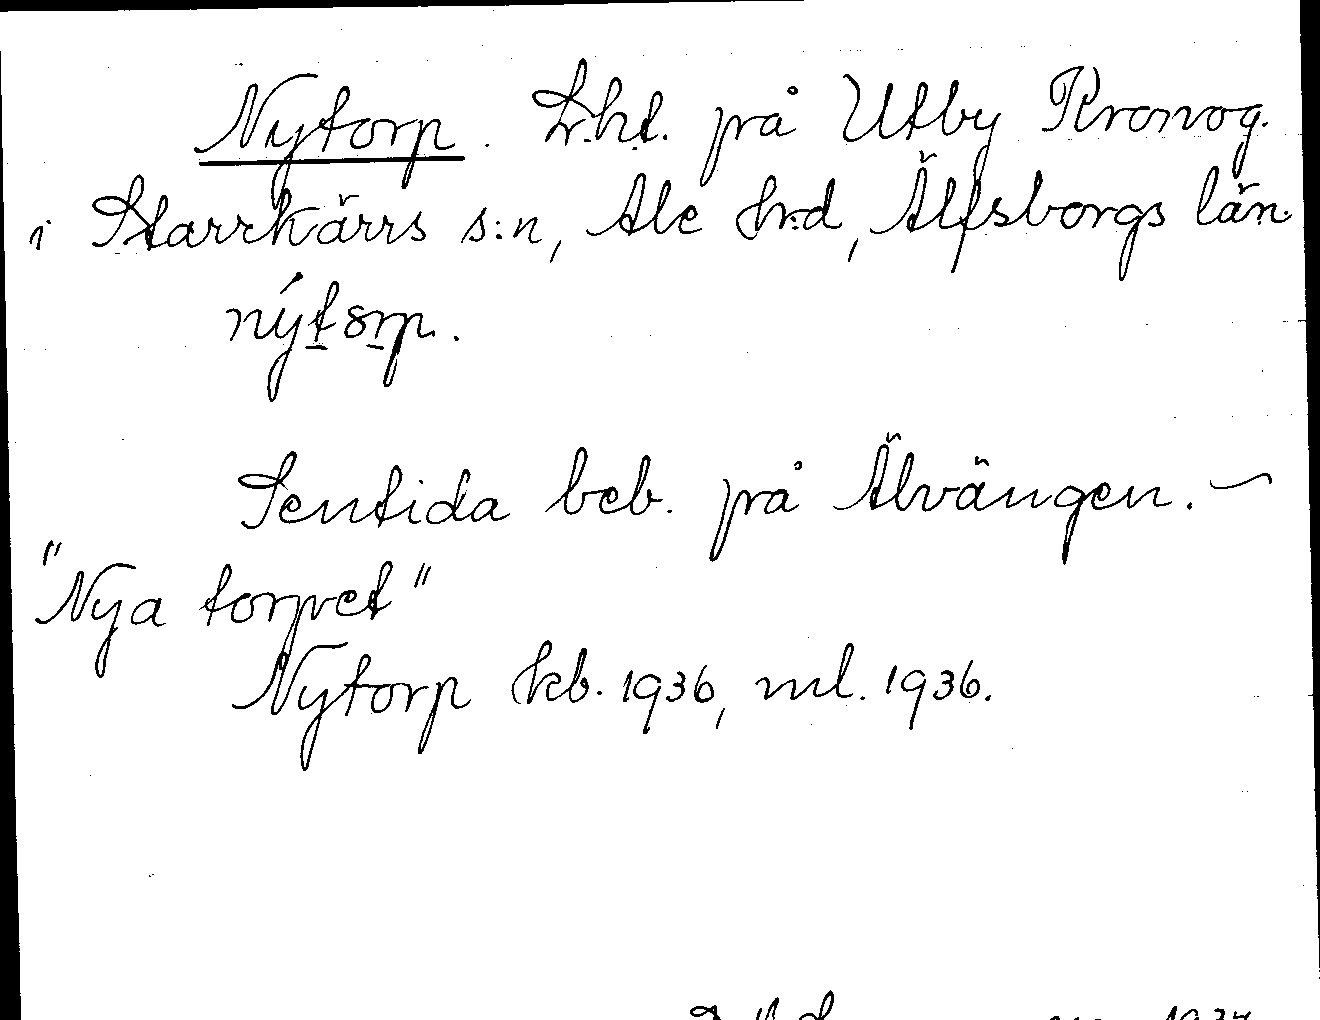 Nytorp. Lht. på Utby Kronog.
i Starrkärrs s:n, Ale hrd, Älfsborgs län.
nýtorp.
Sentida beb. på Älvängen. –
"Nya torpet"
Nytorp kb. 1936, ml. 1936.
1937